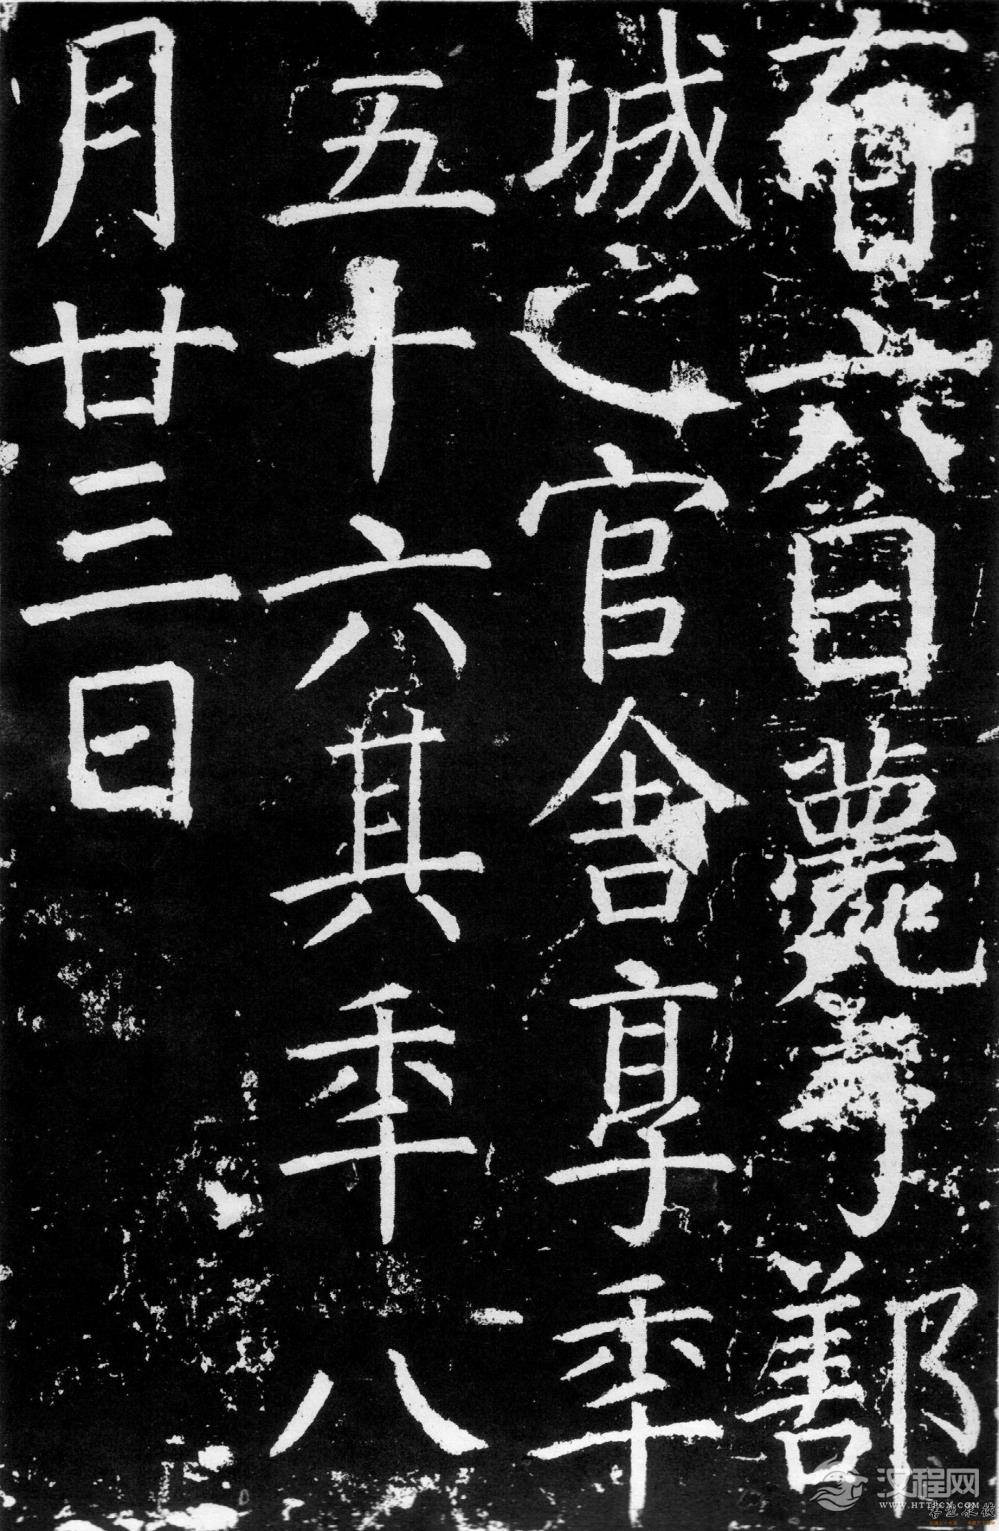 有六日薨鄯
城之官舍享年
五十六其年八
月廿三日
汉程网
WWW.HTTPCN.COM